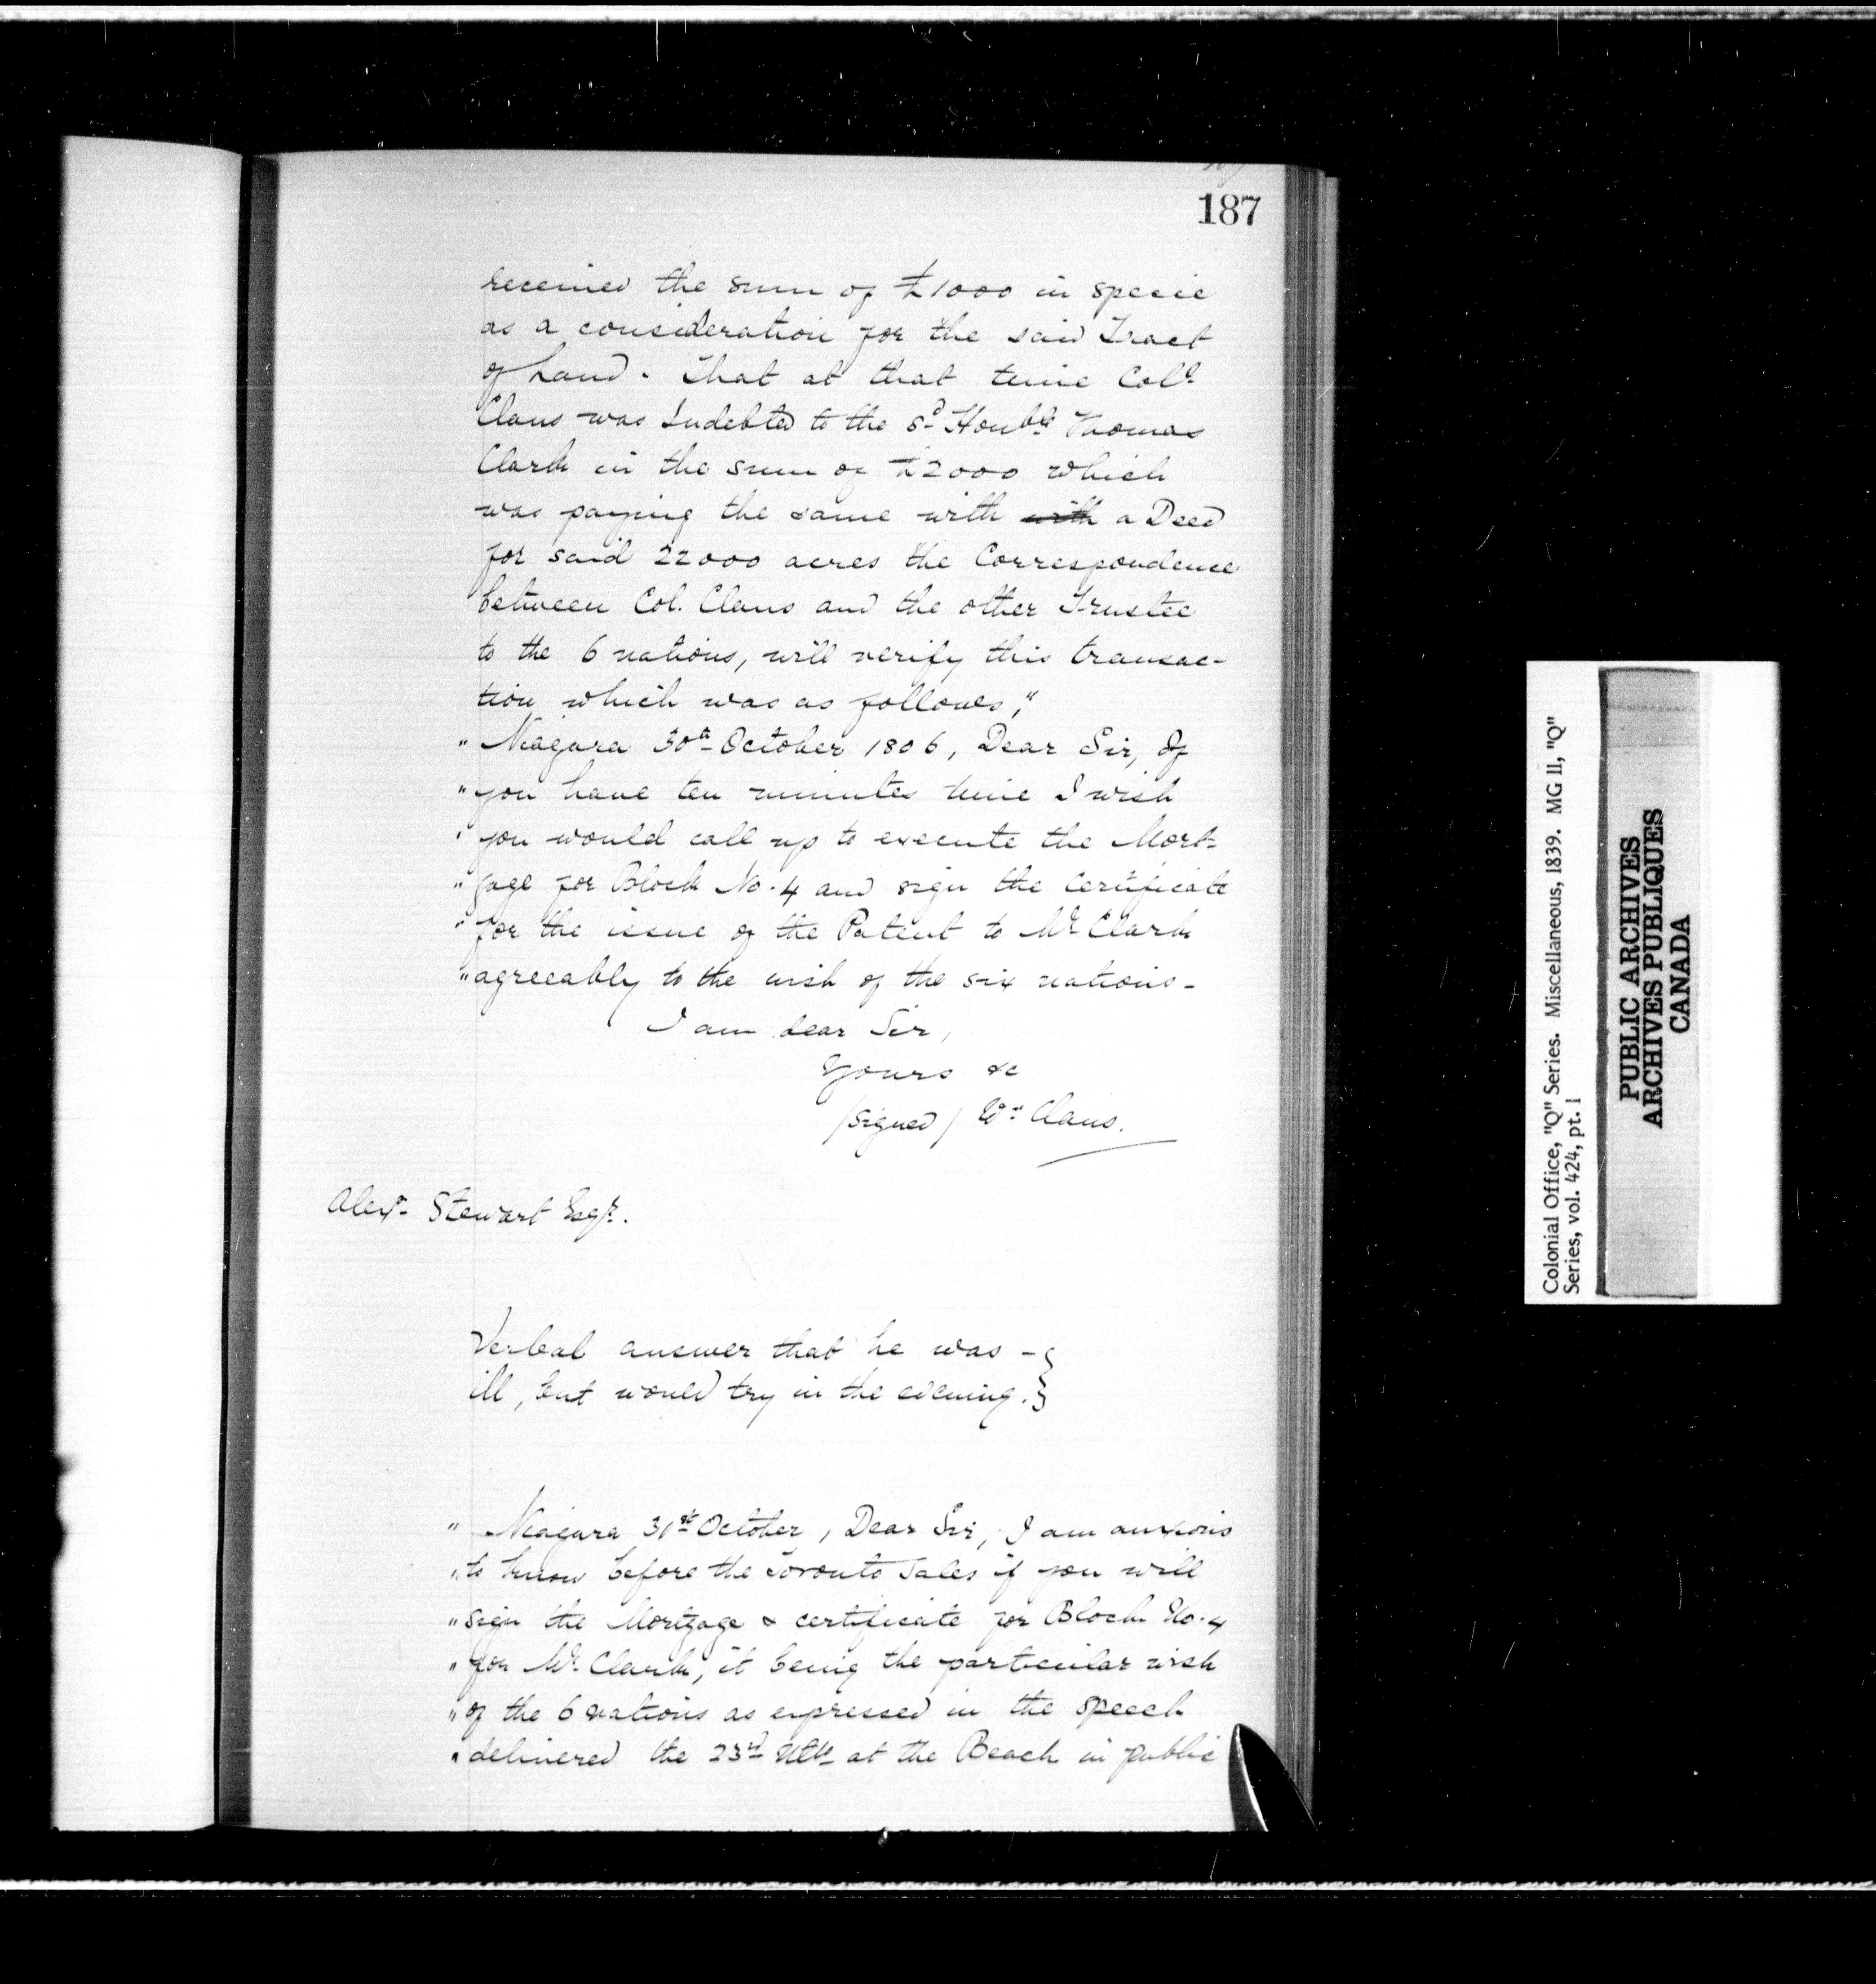 187
received the sum of £1000 in specie
as a consideration for the said Tract
of Land. That at that time Colo.
Claus was Indebted to the sd. Honble. Thomas
Clark in the sum of £2000 which
was paying the same with with a Deed
for said 22000 acres the Correspondence
between Col. Claus and the other Trustee
to the 6 nations, will verify this transac-
tion which was as follows,"
" Niagara 30th October 1806, Dear Sir, If
" you have ten minutes time I wish
" you would call up to execute the Mort-
" gage for Block No. 4 and sign the Certificate
" for the issue of the Patent to Mr. Clark
" agreeably to the wish of the six nations -
I am dear Sir,
Yours &c
/signed/ Wm. Claus.
Alexr. Stewart Esqr.
Verbal answer that he was - }
ill, but would try in the evening. }
" Niagara 31st October, Dear Sir, I am anxious
" to know before the Toronto Sales if you will
" sign the Mortgage & certificate for Block No. 4
" for Mr. Clark, it being the particular wish
" of the 6 nations as expressed in the speech
" delivered the 23rd Ulto. at the Beach in public
Colonial Office, "Q" Series. Miscellaneous, 1839. MG 11, "Q"
Series, vol. 424, pt. 1
PUBLIC ARCHIVES
ARCHIVES PUBLIQUES
CANADA